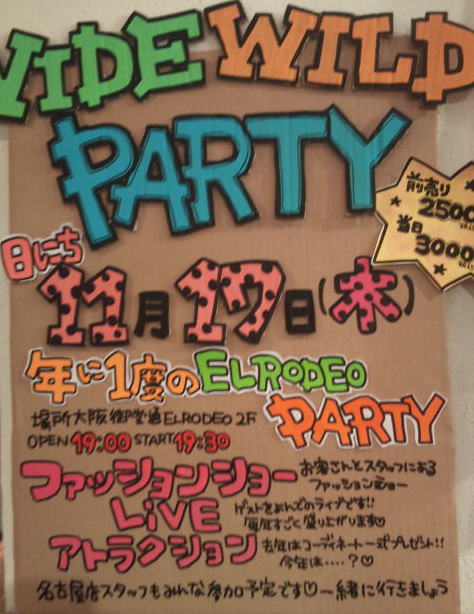 WIDE WILD
PARTY
前売り
2500
当日
3000
日にち
11月17日(木)
年に1度のELRODEO
PARTY
場所大阪御堂通ELRODEO 2F
OPEN 19:00 START 19:30
ファッションショー
お客さんとスタッフによる
ファッションショー
LiVE
ゲストをよんでのライブです!!
毎年すごく盛り上がります♡
アトラクション
去年はコーディネート一式プレゼント!!
今年は....?♡
名古屋店スタッフもみんな参加予定です♡一緒に行きましょう